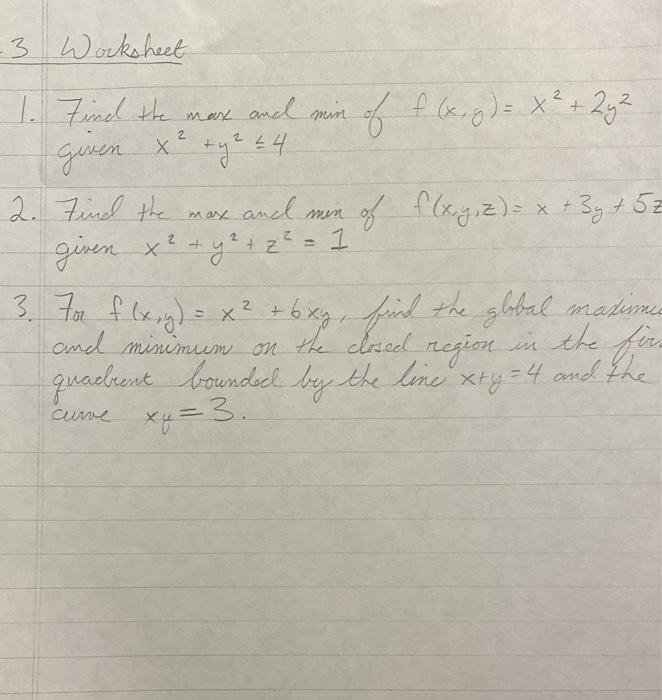 3 Worksheet
1. Find the max and min of f(x,y) = x² + 2y²
given x² + y² ≤ 4
2. Find the max and min of f(x,y,z) = x + 3y + 5z
given x² + y² + z² = 1
3. For f(x,y) = x² + 6xy, find the global maximu
and minimum on the closed region in the firs
quadrent bounded by the line x+y = 4 and the
curve xy = 3.